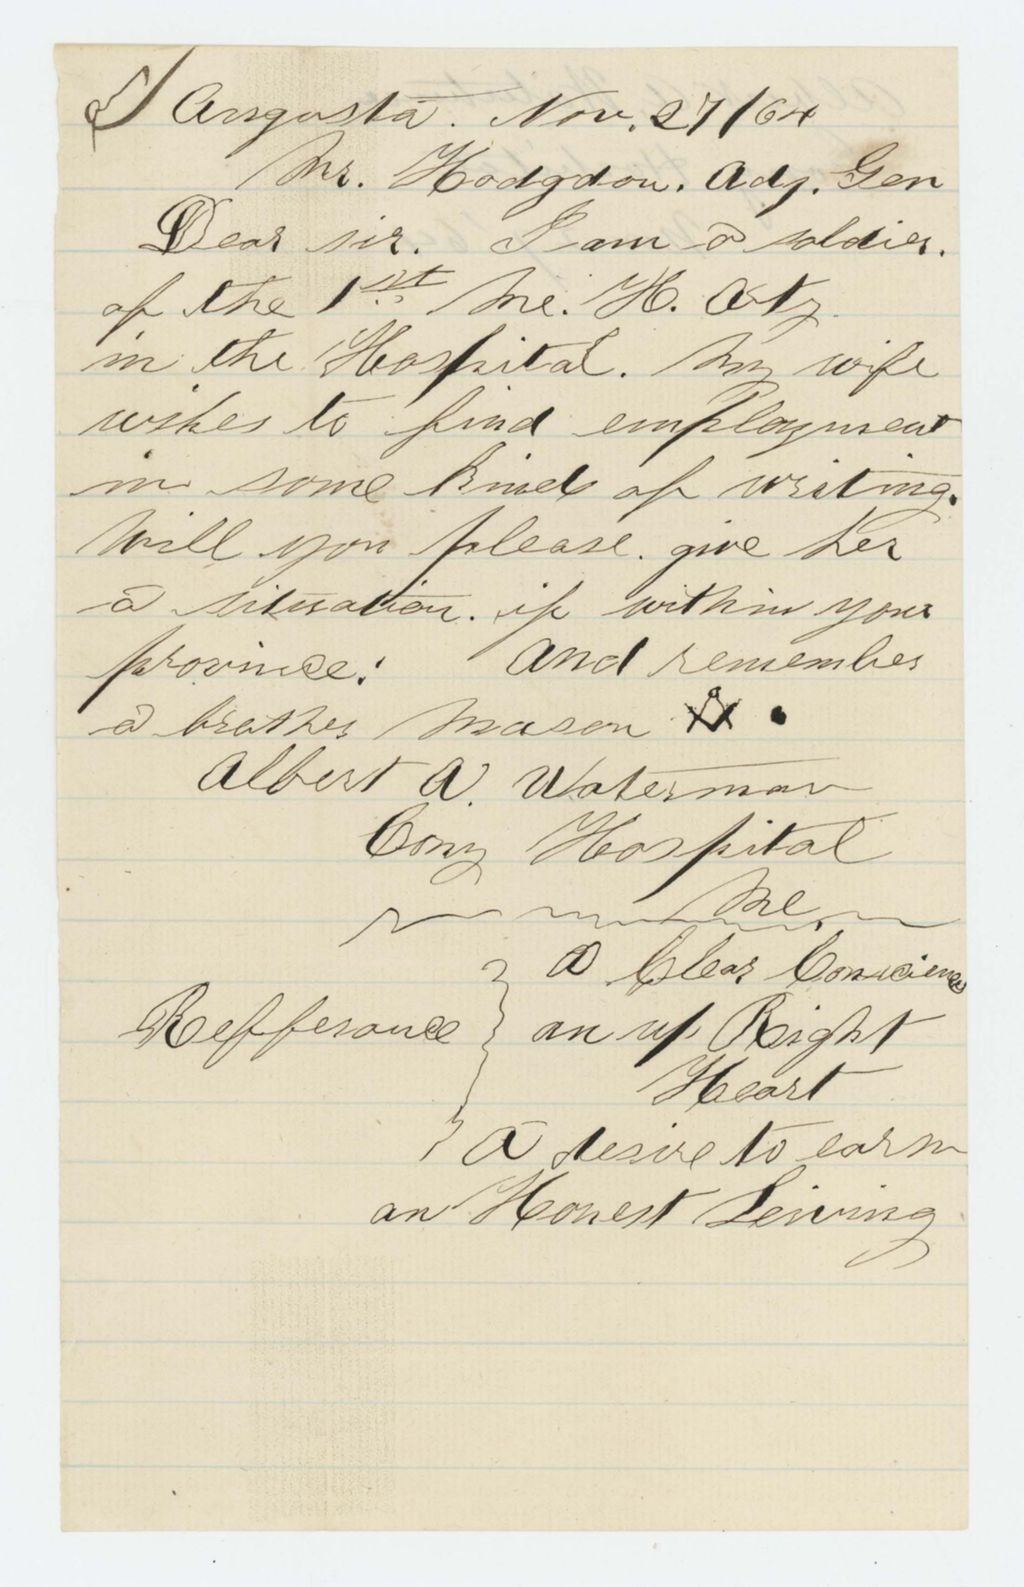 Augusta. Nov. 27/64
Mr. Hodgdon. Adj. Gen
Dear sir. I am a soldier.
of the 1st Me. H. Arty.
in the Hospital. My wife
wishes to find employment
in some kinds of writing.
Will you please. give her
a situation. if within your
province: And remember
a brother Mason
Albert A. Waterman
Cony Hospital
Me.
A Clear Conscience
Refferance } an up Right
Heart
A desire to earn
an Honest Leiving